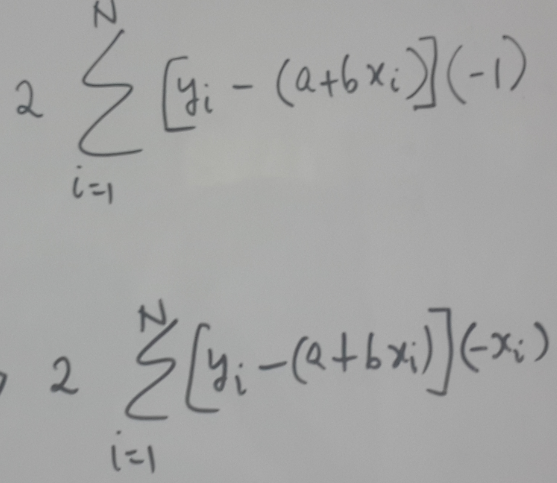 2 \sum_{i=1}^{N} [y_i - (a+bx_i)](-1)
2 \sum_{i=1}^{N} [y_i - (a+bx_i)](-x_i)